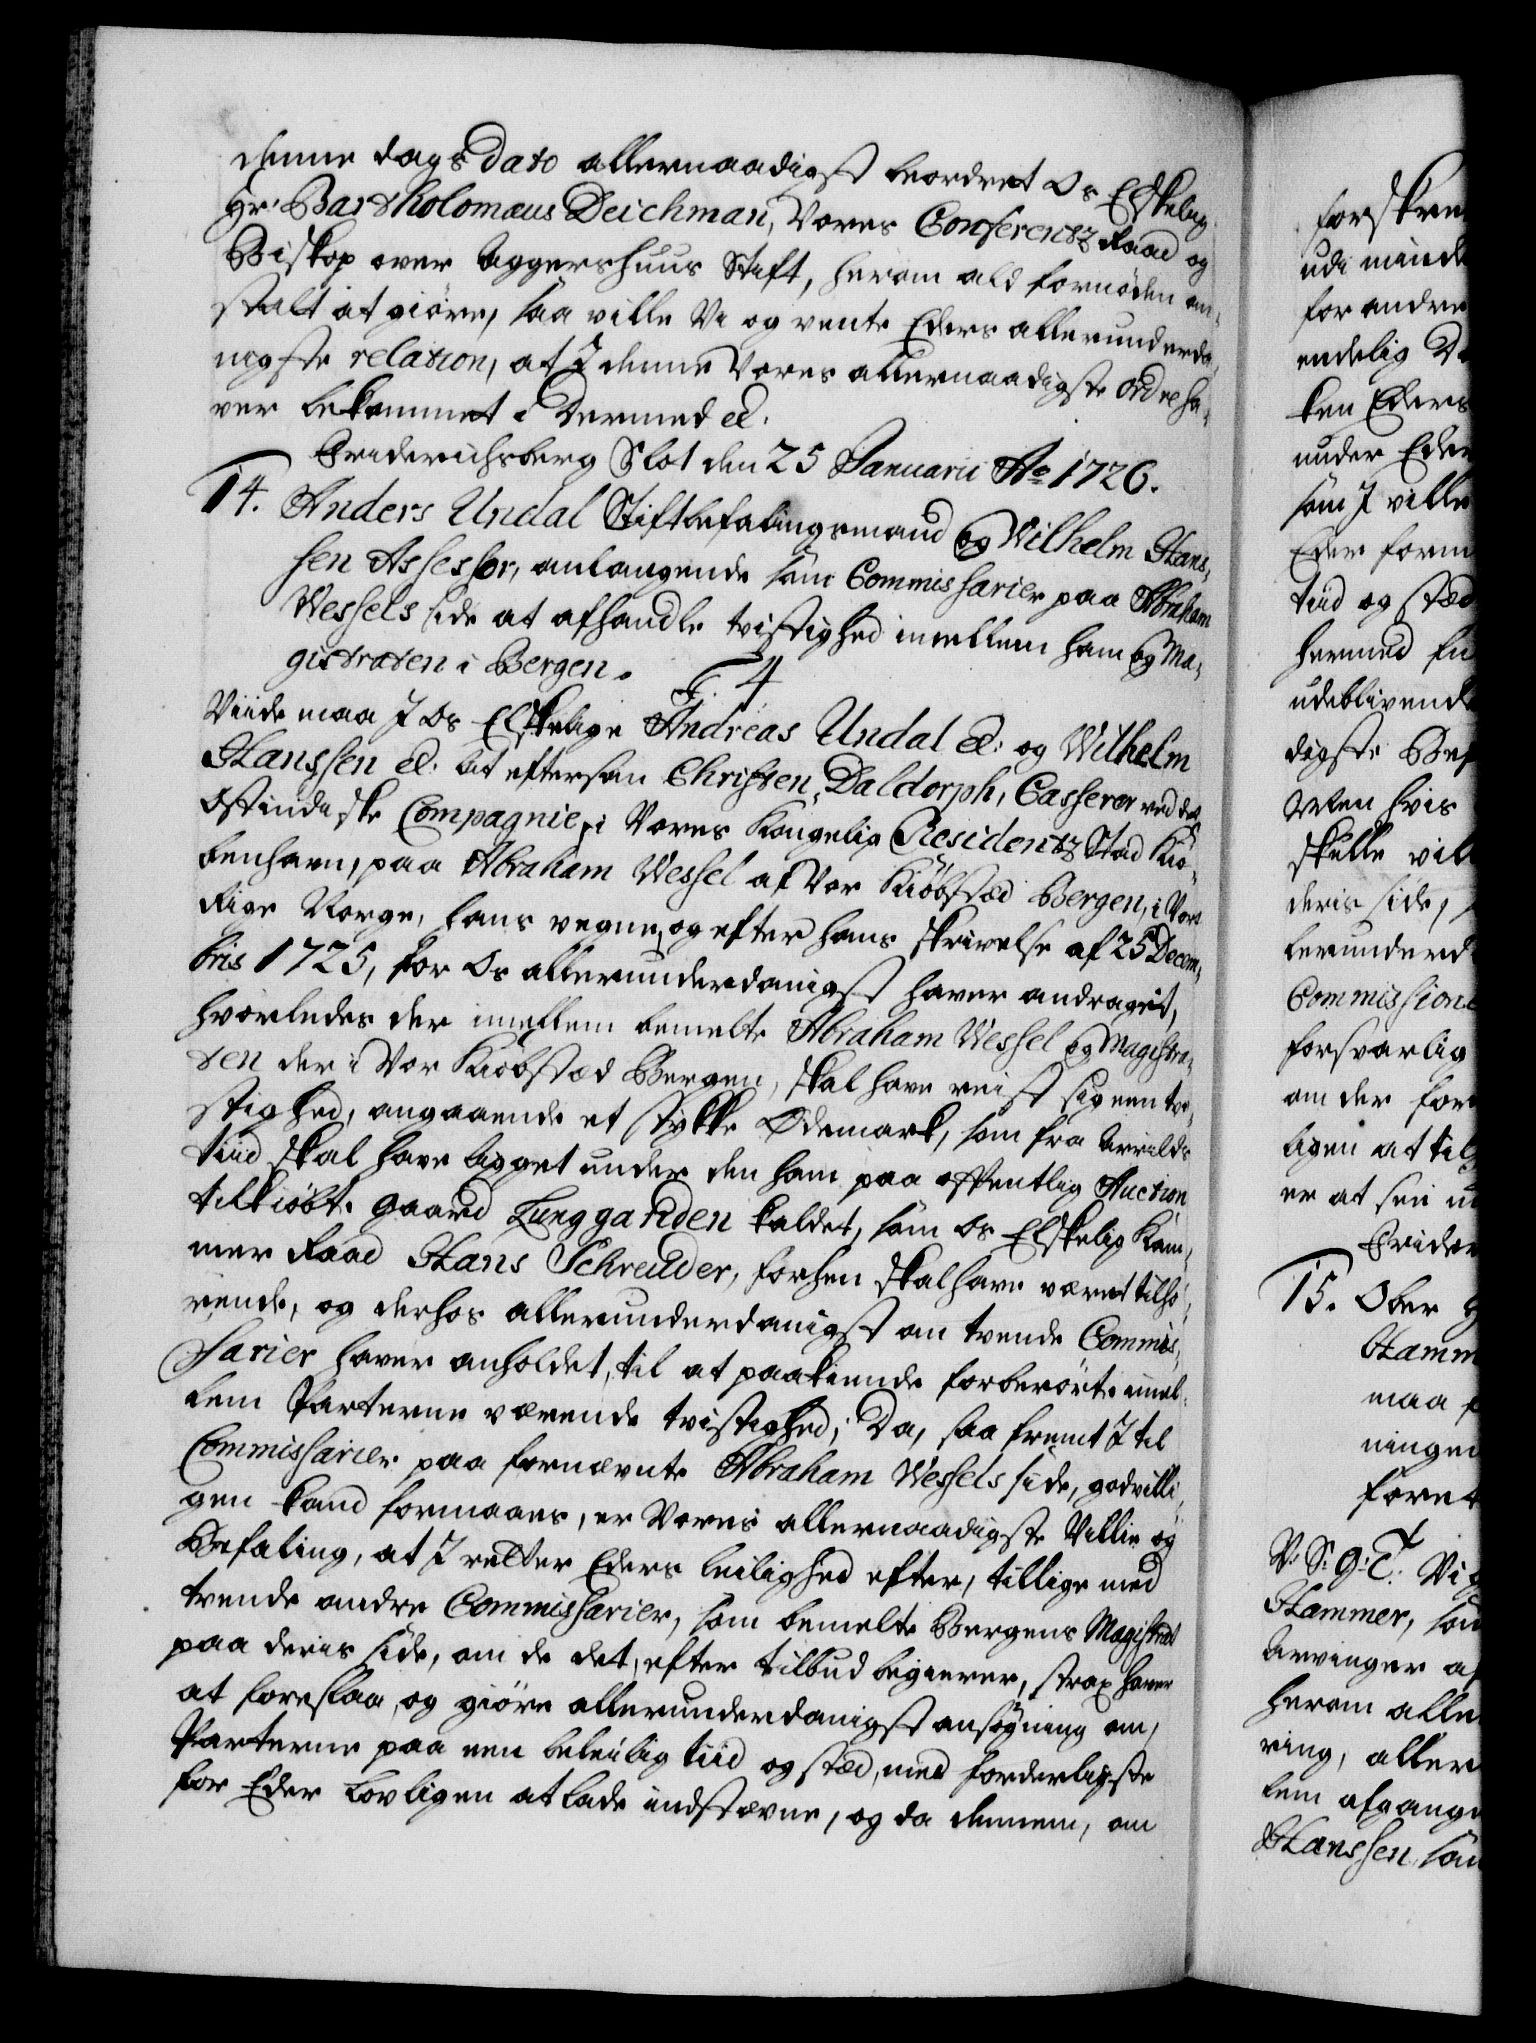 denne dags Dato allernaadigst beordret Os Elskelig
Hr: Bartholomæus Deichman, Vores Conferentz Raad og
Biskop over Aggershuus Stift, herom ald fornøden an-
stalt at giøre, saa ville Vi og vente Eders allerunderda-
nigste relation, at I denne Vores allernaadigste Ordre ha-
ver bekommet. Dermed &.
Friderichsberg Slot den 25 Januarii Ao 1726.
14. Anders Undal Stiftbefalingsmand og Wilhelm Hans-
sen Assessor, anlangende som Commissarier paa Abraham
Wessels side at afhandle tvistighed imellem ham og Ma-
gistraten i Bergen.
F. 4
Viide maa I Os Elskelige Andreas Undal &: og Wilhelm
Hanssen &: At eftersom Christen Daldorph, Casserer ved det
Ostindiske Compagnie i Vores Kongelig Residentz Stad Kiø-
benhavn, paa Abraham Wessel af Vor Kiøbstæd Bergen, i Vort
Rige Norge, hans vegne, og efter hans skrivelse af 25 Decem-
bris 1725, for Os allerunderdanigst haver andraget,
hvorledes der imellem bemelte Abraham Wessel og Magistra-
ten der i Vor Kiøbstæd Bergen, skal have reist sig een tvi-
stighed, angaaende et stykke Ødemark, som fra Arilds
tiid skal have ligget under den ham paa offentlig Auction
tilkiøbte gaard Lunggarden kaldet, som Os Elskelig Kam-
mer Raad Hans Schreuder, forhen skal have været tilhø-
rende, og derhos allerunderdanigst om tvende Commis-
sarier haver anholdet, til at paakiende forberørte imel-
lem Parterne værende tvistighed; Da, saa fremt I til
Commissarier paa fornævnte Abraham Wessels side, godvilli-
gen kand formaaes, er Vores allernaadigste Villie og
Befaling, at I retter Eders leilighed efter, tillige med
tvende andre Commissarier, som bemelte Bergens Magistrat
paa deris side, om de det, efter tilbud begierer, strax haver
at foreslaa, og giøre allerunderdanigst ansøgning om,
Parterne paa een beleilig tiid og stæd, med forderligste
for Eder lovligen at lade indstævne, og da dennem, om
forskre
udi minde
for andre
endelig D
ken Eders
under Eder
som I ville
Eder form
tiid og stæd
hermed
udeblivend
digste Bef
Men hvis
skulle vil
deris side,
lerunderd
Commission
forsvarlig
om der for
ligen at til
er at see
Frider
15. Ober
Hamm
maa
ningen
foret
V: S: G: T: Vi
Hammer, som
Arvinger af
herom alle
ring, aller
lem afgange
Hanssen, som